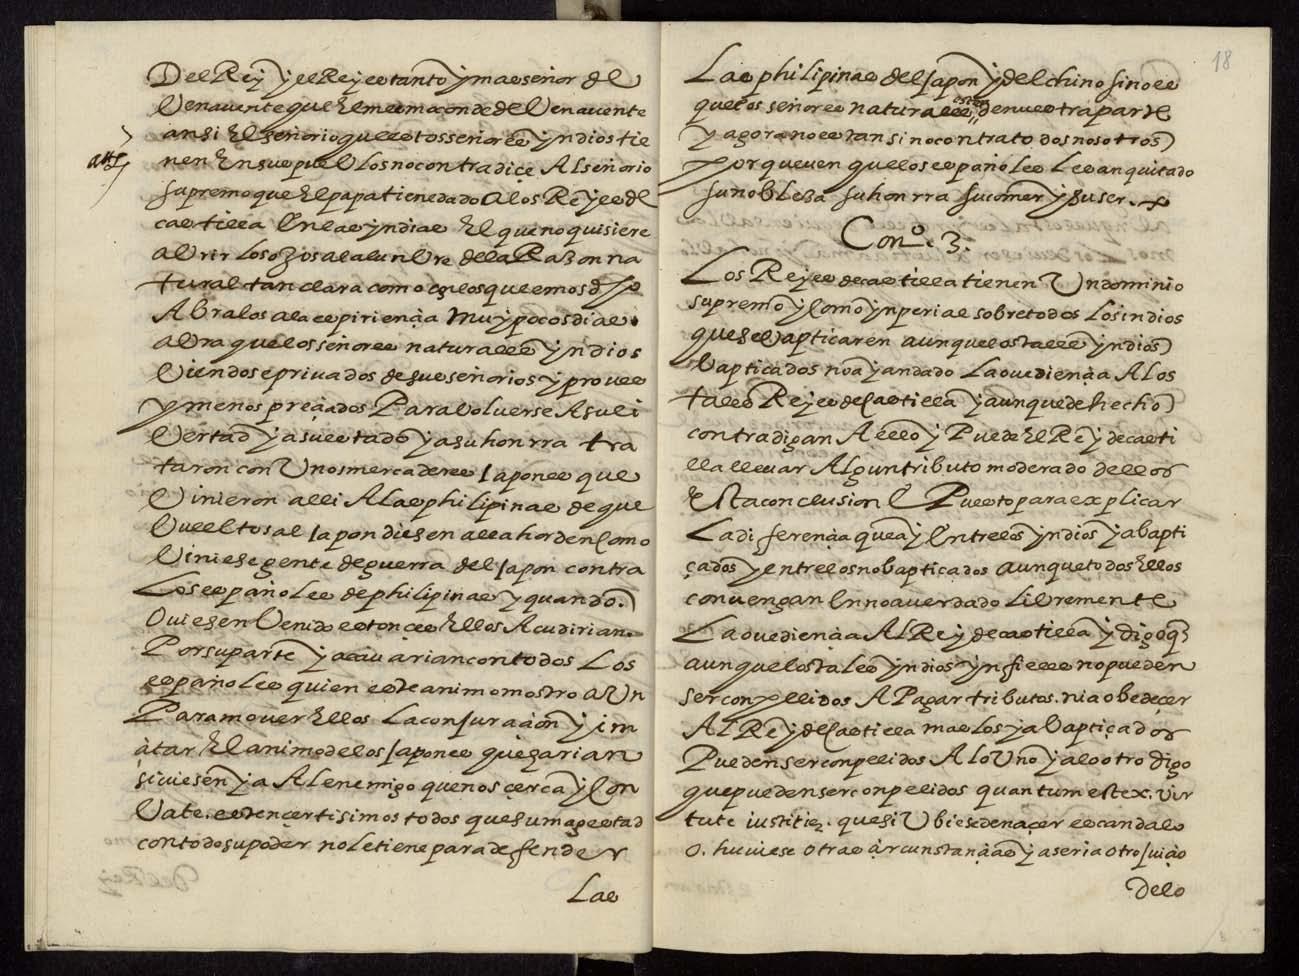 Del Rey y el Rey es tanto y mas señor de
Venavente que el mesmo conde de Venavente
ansi el señorio que estos señores yndios tie
nen en sus pueblos no contradiçe al señorio
supremo que el papa tiene dado a los Reyes de
castilla en las yndias el que no quisiere
abrir los ojos a la lunbre de la Razon na
tural tan clara como es los que emos dho
Abralos a la espiriençia muy pocos dias
abra que los señores naturales yndios
viendose privados de sus señorios y proves
y menospreçiados Para volverse A su li
vertad y a su estado y a su honrra tra
taron con Unos mercaderes Japones que
Vinieron alli A las philipinas de que
vueltos al Japon diesen alla horden como
viniese gente de guerra del Japon contra
Los españoles de philipinas y quando
Oviesen Venido estonçes ellos Acudirian
Por su parte y acavarian con todos Los
españoles quien este animo mostro aUn
Para mover ellos La conjuraçion y in
çitar el animo de los Japones que harian
si viesen ya Al enemigo que nos çerca y con
Vate. esten çertisimos todos que su magestad
con todo su poder no le tiene para defender
Las
18
Las philipinas del Japon y del chino sino es
que los señores naturales esten de nuestra parte
y agora no estan sino contra todos nosotros
porque ven que los españoles Les an quitado
su nobleza su honrra su comer y su ser.
Con.º 3.
Los Reyes de castilla tienen Un dominio
supremo y como ynperial sobre todos Los indios
que se bapticaren aunque los tales yndios
bapticados no ayan dado La ovediençia A los
tales Reyes de Castilla y aunque de hecho
contradigan A ello y Puede el Rey de casti
lla llevar Algun tributo moderado dellos
esta conclusion e Puesto para explicar
La diferençia que ay entre los yndios ya bapti
çados y entre los no bapticados aunque todos ellos
convengan en no aver dado Libremente
La ovediençia Al Rey de castilla y digo q
aunque los tales yndios ynfieles no pueden
ser conpellidos A Pagar tributos. ni a obedeçer
Al Rey de Castilla mas los ya bapticados
Pueden ser conpelidos A lo Uno y a lo otro digo
que pueden ser conpelidos quantum est ex. vir
tute iustitiæ. que si Ubiese de naçer escandalo
o. huviese otras çircunstançias ya seria otro juiçio
delo